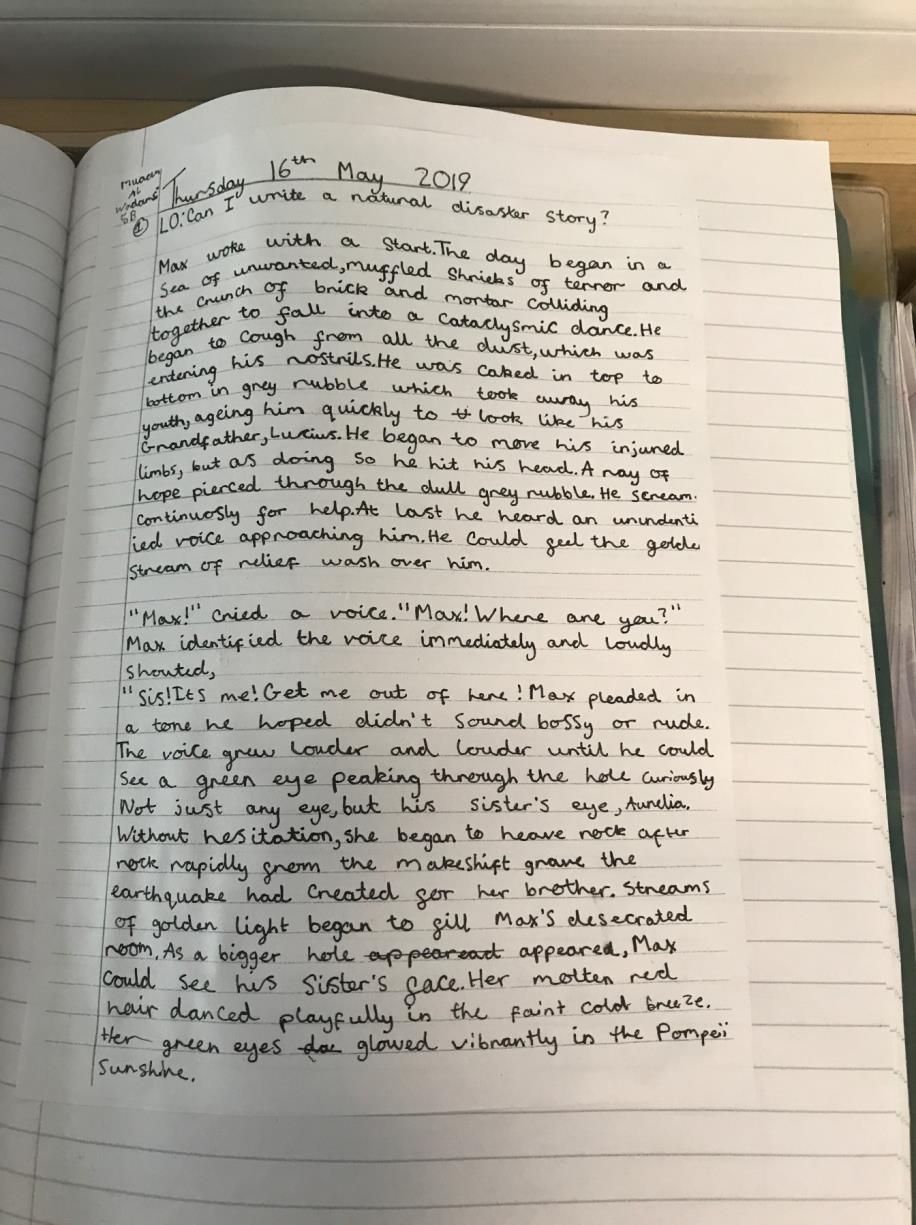 At
5B
Thursday 16th May 2019
LO:Can I write a natural disaster story?
Max woke with a start.The day began in a
sea of unwanted,muffled shrieks of terror and
the crunch of brick and mortar colliding
together to fall into a cataclysmic dance.He
began to cough from all the dust,which was
entering his nostrils.He was caked in top to
bottom in grey rubble which took away his
youth,ageing him quickly to look like his
Grandfather,Lucius.He began to move his injured
limbs, but as doing so he hit his head.A ray of
hope pierced through the dull grey rubble.He scream.
continuosly for help.At last he heard an unindenti
ied voice approaching him.He could feel the golde
stream of relief wash over him.
"Max!" cried a voice."Max!Where are you?"
Max identified the voice immediately and loudly
shouted,
"Sis!Its me!Get me out of here! Max pleaded in
a tone he hoped didn't sound bossy or rude.
The voice grew louder and louder until he could
see a green eye peaking through the hole curiously
Not just any eye,but his sister's eye,Aurelia.
Without hesitation,she began to heave rock after
rock rapidly from the makeshift grave the
earthquake had created for her brother. Streams
of golden light began to fill Max's desecrated
room.As a bigger hole appeared,Max
could see his sister's face.Her molten red
hair danced playfully in the faint cold breeze.
Her green eyes glowed vibrantly in the Pompeii
sunshine.